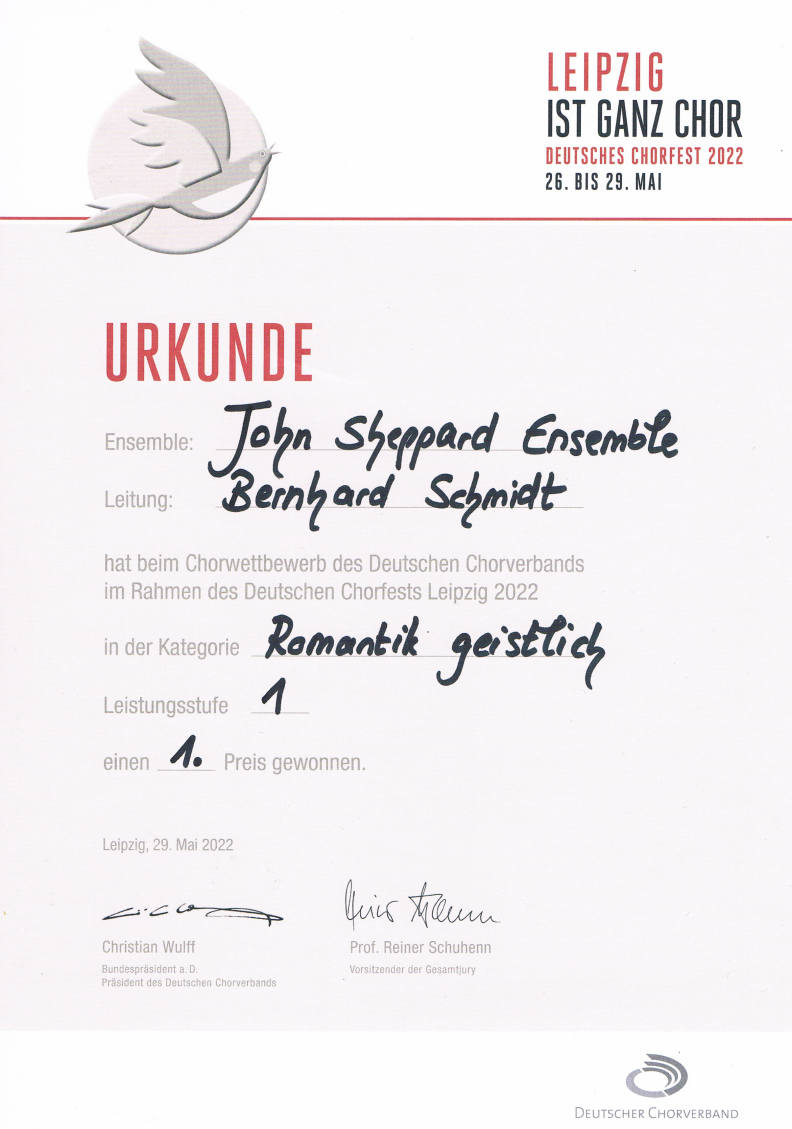 LEIPZIG
IST GANZ CHOR
DEUTSCHES CHORFEST 2022
26. BIS 29. MAI
URKUNDE
Ensemble: John Sheppard Ensemble
Leitung: Bernhard Schmidt
hat beim Chorwettbewerb des Deutschen Chorverbands
im Rahmen des Deutschen Chorfests Leipzig 2022
in der Kategorie Romantik geistlich
Leistungsstufe 1
einen 1. Preis gewonnen.
Leipzig, 29. Mai 2022
Christian Wulff
Bundespräsident a. D.
Präsident des Deutschen Chorverbands
Prof. Reiner Schuhenn
Vorsitzender der Gesamtjury
DEUTSCHER CHORVERBAND